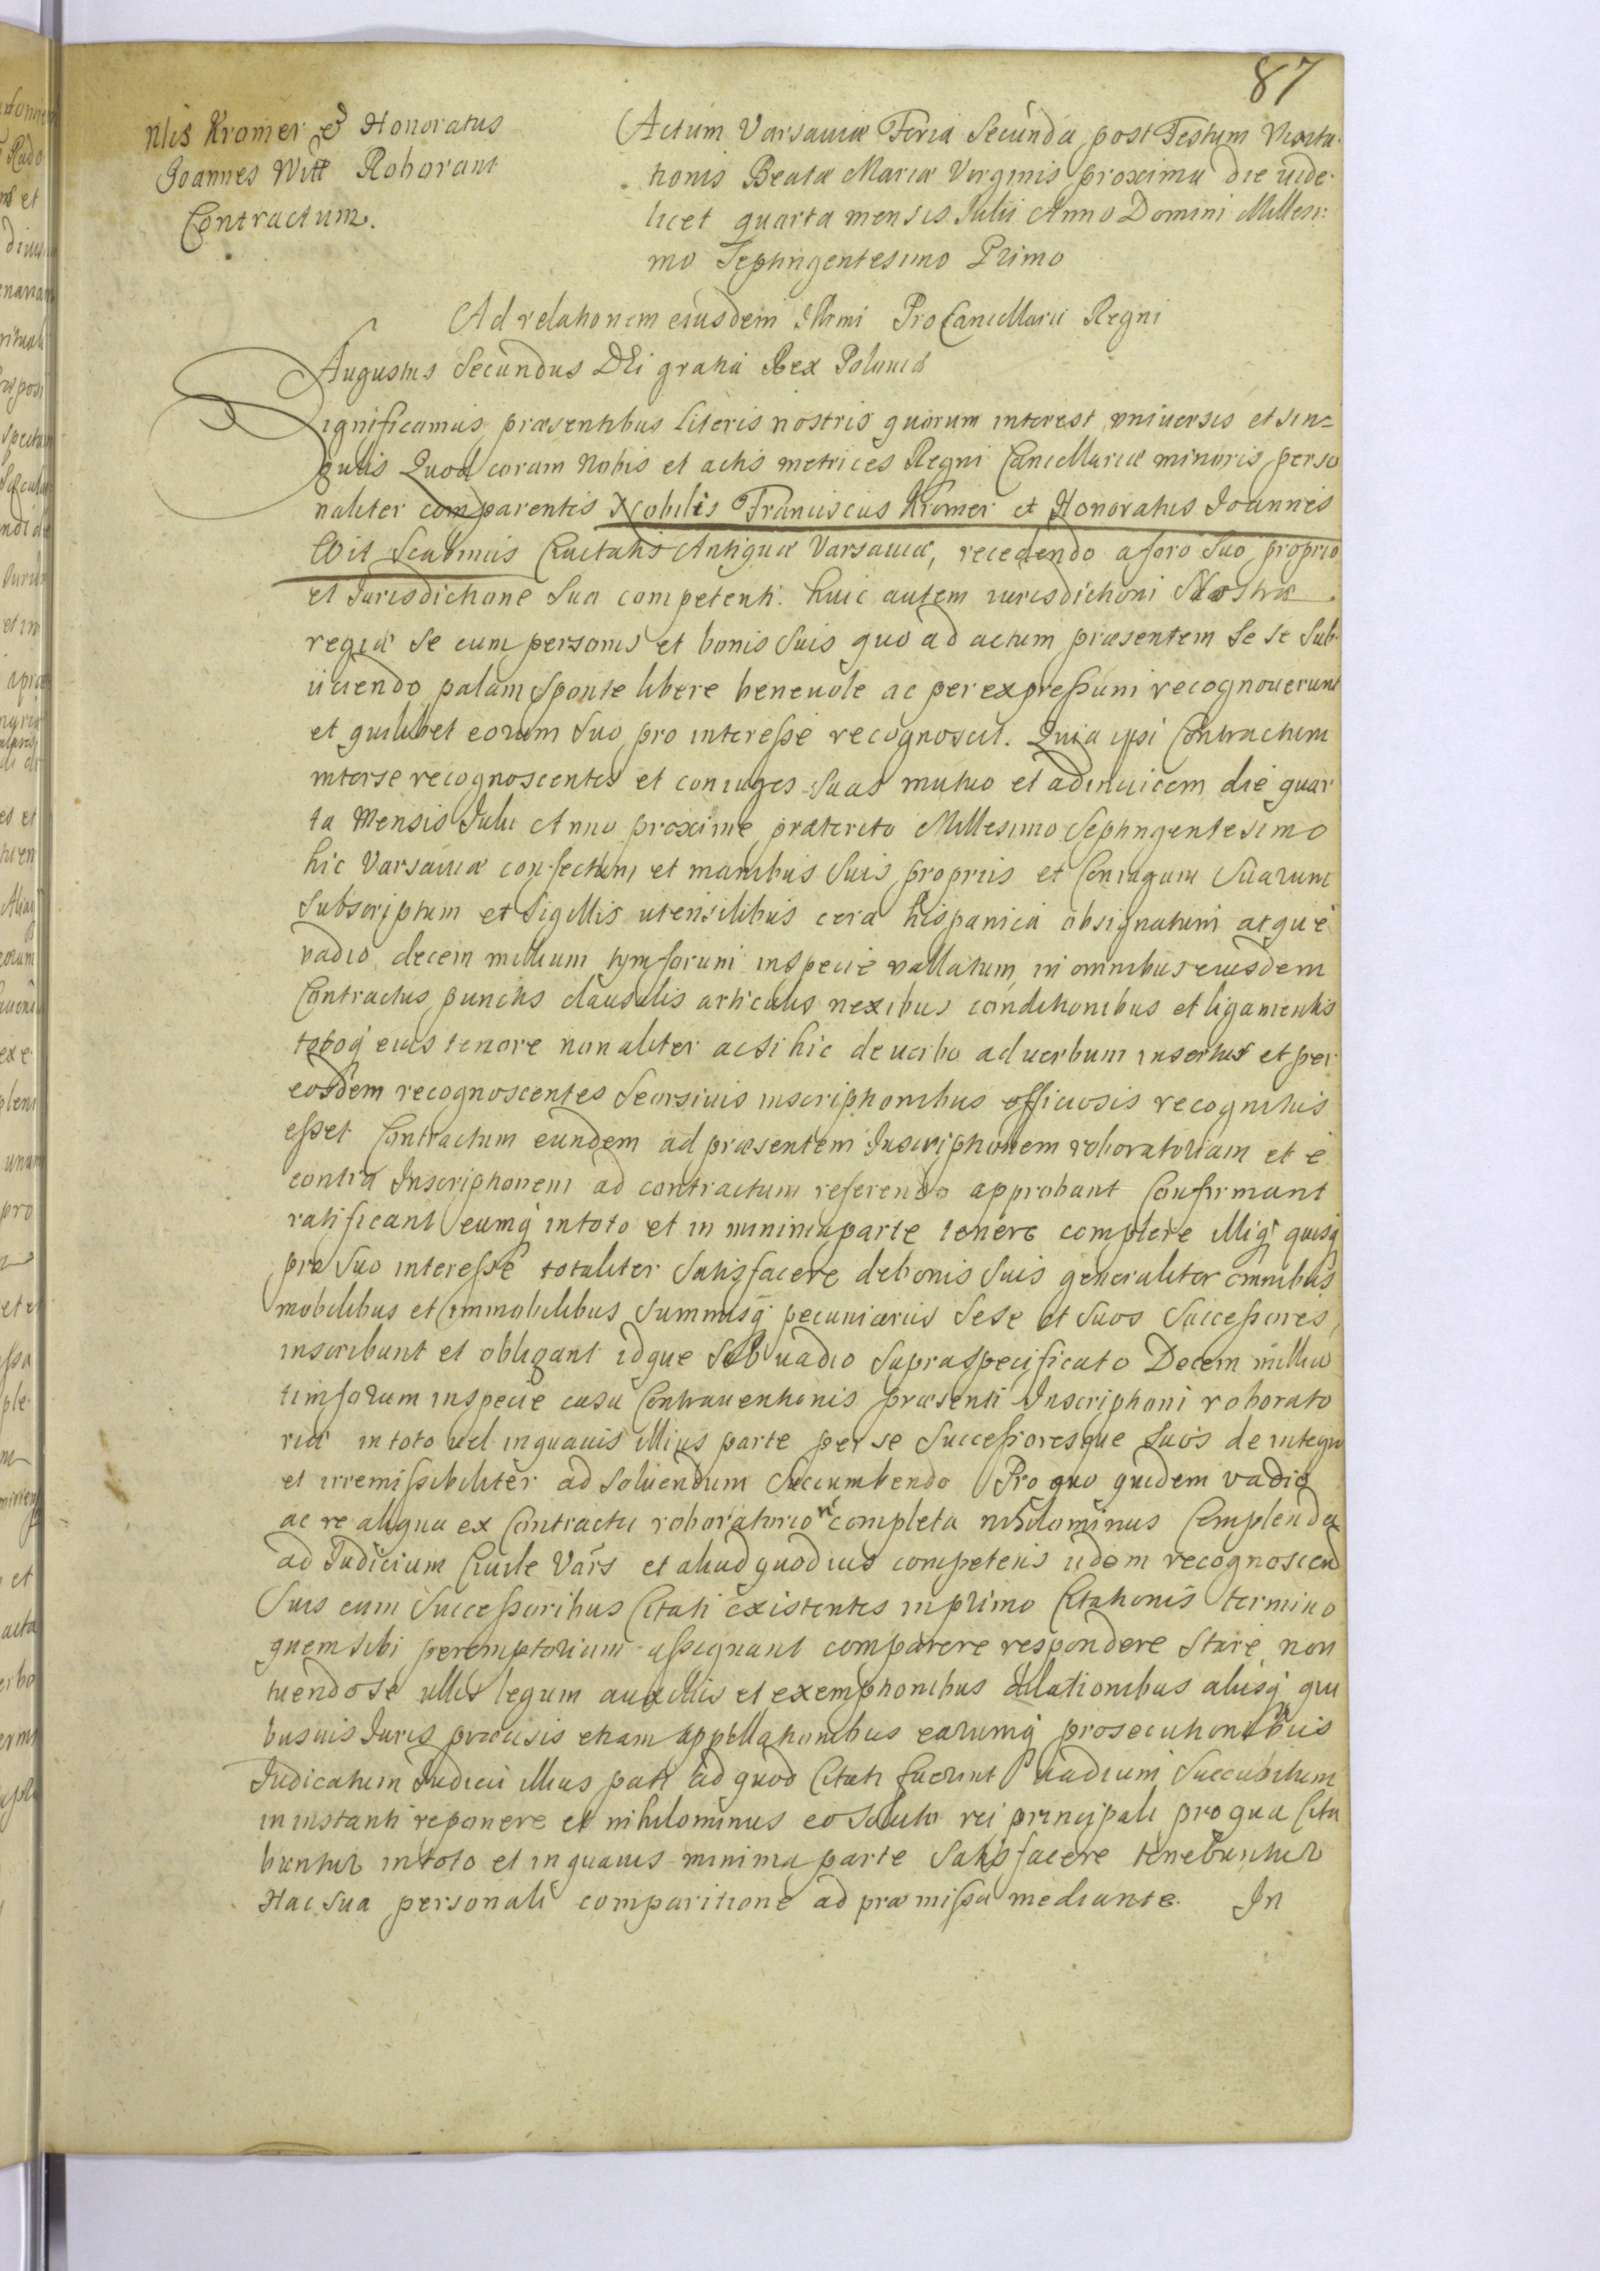 87
Nlis Kromer & Honoratus
Joannes Witt Roborant
Contractum.
Actum Varsaviæ Feria Secunda post Festum Visita-
tionis Beatæ Mariæ Virginis proxima die vide-
licet quarta mensis Julii Anno Domini Millesi-
mo Septingentesimo Primo
Ad relationem eiusdem Illmi ProCancellarii Regni
Augustus Secundus DEi gratia Rex Poloniæ
Significamus præsentibus literis nostris quorum interest universis et sin=
gulis Quod coram Nobis et actis metrices Regni Cancellariæ minoris perso
naliter comparentes Nobilis Franciscus Kromer et Honoratus Joannes
Wit Scabinus Civitatis Antiquæ Varsaviæ, recedendo a foro suo proprio
et Jurisdictione sua competenti. huic autem iurisdictioni Nostræ
regiæ se cum personis et bonis suis quo ad actum præsentem se se sub-
iiciendo palam sponte libere benevole ac per expressum recognoverunt
et quilibet eorum suo pro interesse recognoscit. Quia ipsi Contractum
inter se recognoscentes et coniuges suas mutuo et adinvicem die quar
ta Mensis Julii Anno proxime præterito Millesimo Septingentesimo
hic Varsaviæ confectum et manibus suis propriis et Coniugum suarum
subscriptum et sigillis utensilibus cera hispanica obsignatum atque
vadio decem millium tymforum in specie vallatum in omnibus eiusdem
Contractus punctis clausulis articulis nexibus conditionibus et ligamentis
totoq eius tenore non aliter ac si hic de verbo ad verbum insertus et per
eosdem recognoscentes seorsivis inscriptionibus officiosis recognitus
esset Contractum eundem ad præsentem Inscriptionem roboratoriam et e
contra Inscriptionem ad contractum referendo approbant Confirmant
ratificant eumq in toto et in minima parte tenere complere illiq quisq
pro suo interesse totaliter satisfacere de bonis suis generaliter omnibus
mobilibus et immobilibus summisq pecuniariis sese et suos successores,
inscribunt et obligant idque sub vadio supraspecificato Decem milliu
timforum in specie casu Contraventionis præsenti Inscriptioni roborato
riæ in toto vel in quavis illius parte per se successoresque suos de integro
et irremissibiliter ad solvendum succumbendo Pro quo quidem vadio
ac re aliqua ex Contractu roboratorio n completa nihilominus Complenda
ad Judicium Civile Vars et aliud quodvis competens iidem recognoscen
suis cum successoribus Citati existentes in primo Citationis termino
quem sibi peremptorium assignant comparere respondere stare non
tuendo se ullis legum auxiliis et exemptionibus dilationibus aliisq qui
busvis Juris præcisis etiam appellationibus earumq prosecutionibus
Judicatum Judicii illius pati ad quod Citati fuerint vadium succubitum
in instanti reponere et nihilominus eo soluto rei principali pro qua Cita
buntur in toto et in quavis minima parte satisfacere tenebuntur
Hac sua personali comparitione ad præmissa mediante. In